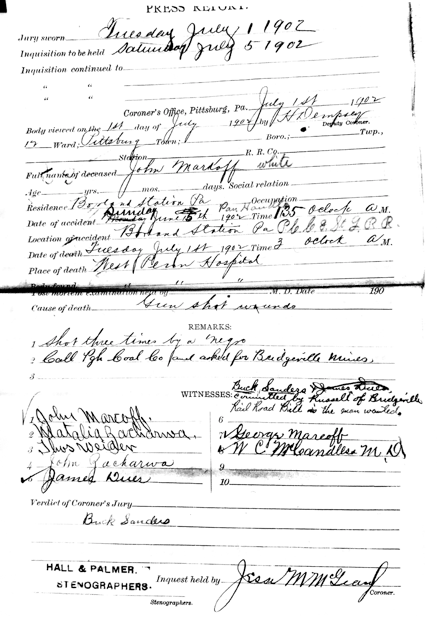 PRESS REPORT.
Jury sworn Tuesday July 1 1902
Inquisition to be held Saturday July 5 1902
Inquisition continued to
" "
" "
Coroner's Office, Pittsburg, Pa. July 1st 1902
Body viewed on the 1st day of July 1902 by H Dempsey Deputy Coroner.
12 Ward, Pittsburg Town; Boro.; Twp.,
Station R. R. Co.
Full name of deceased John Markoff white
Age yrs. mos. days. Social relation
Residence Station Pa Occupation
Date of accident Sunday June 15th 1902 Time 125 Oclock A M.
Location of accident Station Pa P. C. C. & St L R. R.
Date of death Tuesday July 1st 1902 Time 3 oclock A M.
Place of death West Penn Hospital
Body found " "
Post mortem examination held by M. D. Date 190
Cause of death Gun shot wounds
REMARKS:
1 Shot three times by a negro
2 Call Pgh Coal Co and asked for Bridgeville Mines.
3
WITNESSES: Buck Sanders
committed by Russell of Bridgeville
Rail Road Bill is the man wanted.
1 John Marcoff.
2 Natalia Zacharwa.
3
4 John Zacharwa
5 James
6
7 George Marcoff
8 W C McCandless M. D.
9
10
Verdict of Coroner's Jury
Buck Sanders
HALL & PALMER,
STENOGRAPHERS.
Inquest held by Jesse M McGeary
Coroner.
Stenographers.